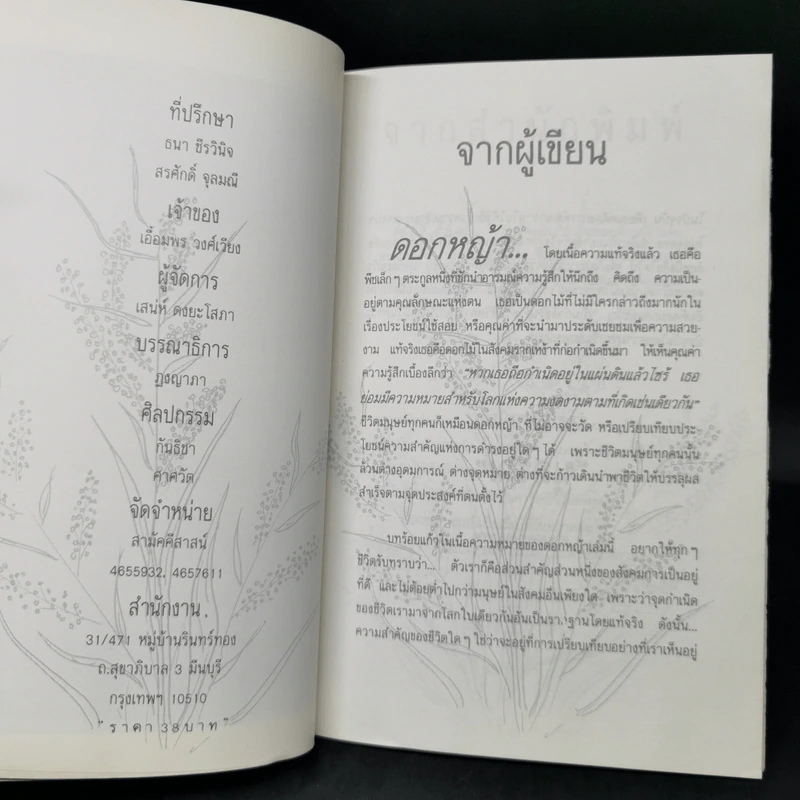 ที่ปรึกษา
ธนา ชีรวินิจ
สรศักดิ์ จุลมณี
เจ้าของ
เอื้อมพร วงศ์เวียง
ผู้จัดการ
เสน่ห์ ดงยะโสภา
บรรณาธิการ
ภูงญาภา
ศิลปกรรม
กันธิชา
ศาศวัต
จัดจำหน่าย
สามัคคีสาสน์
4655932, 4657611
สำนักงาน
31/471 หมู่บ้านรินทร์ทอง
ถ.สุขาภิบาล 3 มีนบุรี
กรุงเทพฯ 10510
"ราคา 38 บาท"
จากสำนักพิมพ์
จากผู้เขียน
ดอกหญ้า... โดยเนื้อความแท้จริงแล้ว เธอคือ
พืชเล็กๆ ตระกูลหนึ่งที่ชักนำอารมณ์ความรู้สึกให้นึกถึง คิดถึง ความเป็น-
อยู่ตามคุณลักษณะแห่งตน เธอเป็นดอกไม้ที่ไม่มีใครกล่าวถึงมากนักใน
เรื่องประโยชน์ใช้สอย หรือคุณค่าที่จะนำมาประดับเชยชมเพื่อความสวย-
งาม แท้จริงเธอคือดอกไม้ในสังคมรากเหง้าที่ก่อกำเนิดขึ้นมา ให้เห็นคุณค่า
ความรู้สึกเบื้องลึกว่า "หากเธอถือกำเนิดอยู่ในแผ่นดินแล้วไซร้ เธอ
ย่อมมีความหมายสำหรับโลกแห่งความงดงามตามที่เกิดเช่นเดียวกัน"
ชีวิตมนุษย์ทุกคนก็เหมือนดอกหญ้า ที่ไม่อาจจะวัด หรือเปรียบเทียบประ-
โยชน์ความสำคัญแห่งการดำรงอยู่ใดๆ ได้ เพราะชีวิตมนุษย์ทุกคนนั้น
ล้วนต่างอุดมการณ์ ต่างจุดหมาย ต่างที่จะก้าวเดินนำพาชีวิตให้บรรลุผล
สำเร็จตามจุดประสงค์ที่ตนตั้งไว้
บทร้อยแก้วในเนื้อความหมายของดอกหญ้าเล่มนี้ อยากให้ทุกๆ
ชีวิตรับทราบว่า... ตัวเราก็คือส่วนสำคัญส่วนหนึ่งของสังคมการเป็นอยู่
ที่ดี และไม่ด้อยต่ำไปกว่ามนุษย์ในสังคมอื่นเพียงใด เพราะว่าจุดกำเนิด
ของชีวิตเรามาจากโลกใบเดียวกันอันเป็นรากฐานโดยแท้จริง ดังนั้น...
ความสำคัญของชีวิตใดๆ ใช่ว่าจะอยู่ที่การเปรียบเทียบอย่างที่เราเห็นอยู่